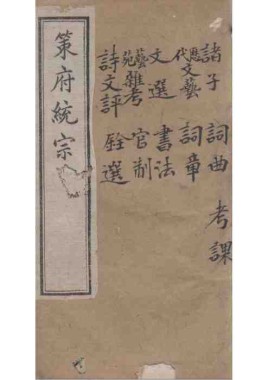 諸子 詞曲 考課
歷代文藝 詞章
文選 書法
藝苑雜考 官制
詩文評 銓選
策府統宗